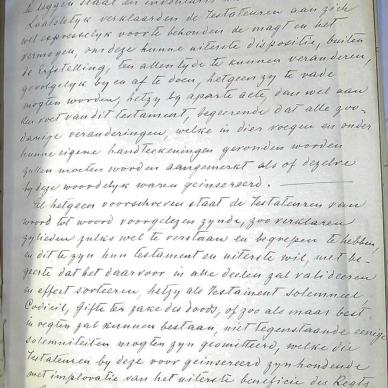 te leggen staat en inventaris
Laatstelijk verklaarden de Testateuren aan zich
wel expresselijk voorte behouden de magt en het
vermogen, om deze hunne uiterste dispositie, buiten
de Erfstelling, ten allen tyde te kunnen veranderen,
er by en af te doen, hetgeen zy te rade
mogten worden, hetzy by aparte acte, dan wel aan
den voet van dit testament, begeerende dat alle zoo-
danige veranderingen, welke in dier voegen en onder
hunne eigene handteekeningen gevonden worden
zullen moeten worden aangemerkt als of dezelve
by deze woordelyk waren geinsereerd.
Al hetgeen voorschreven staat de Testateuren van
woord tot woord voorgelezen zynde, zoo verklaren
zylieden zulks wel te verstaan en begrepen te hebben,
en dit te zyn hun testament en uiterste wil, met be-
geerte dat het daarvoor in alle deelen zal valideeren
en effect sorteeren, hetzy als Testament solemneel,
Codicil, Gifte ter zake des doods, of zoo als maar best
mogten zal kunnen bestaan, niet tegenstaande eenige
solemniteiten mogten zyn geomitteerd, welke die
Testateuren by deze voor geinsereerd zyn houdende
met imploratie van het uiterste beneficie des Regts